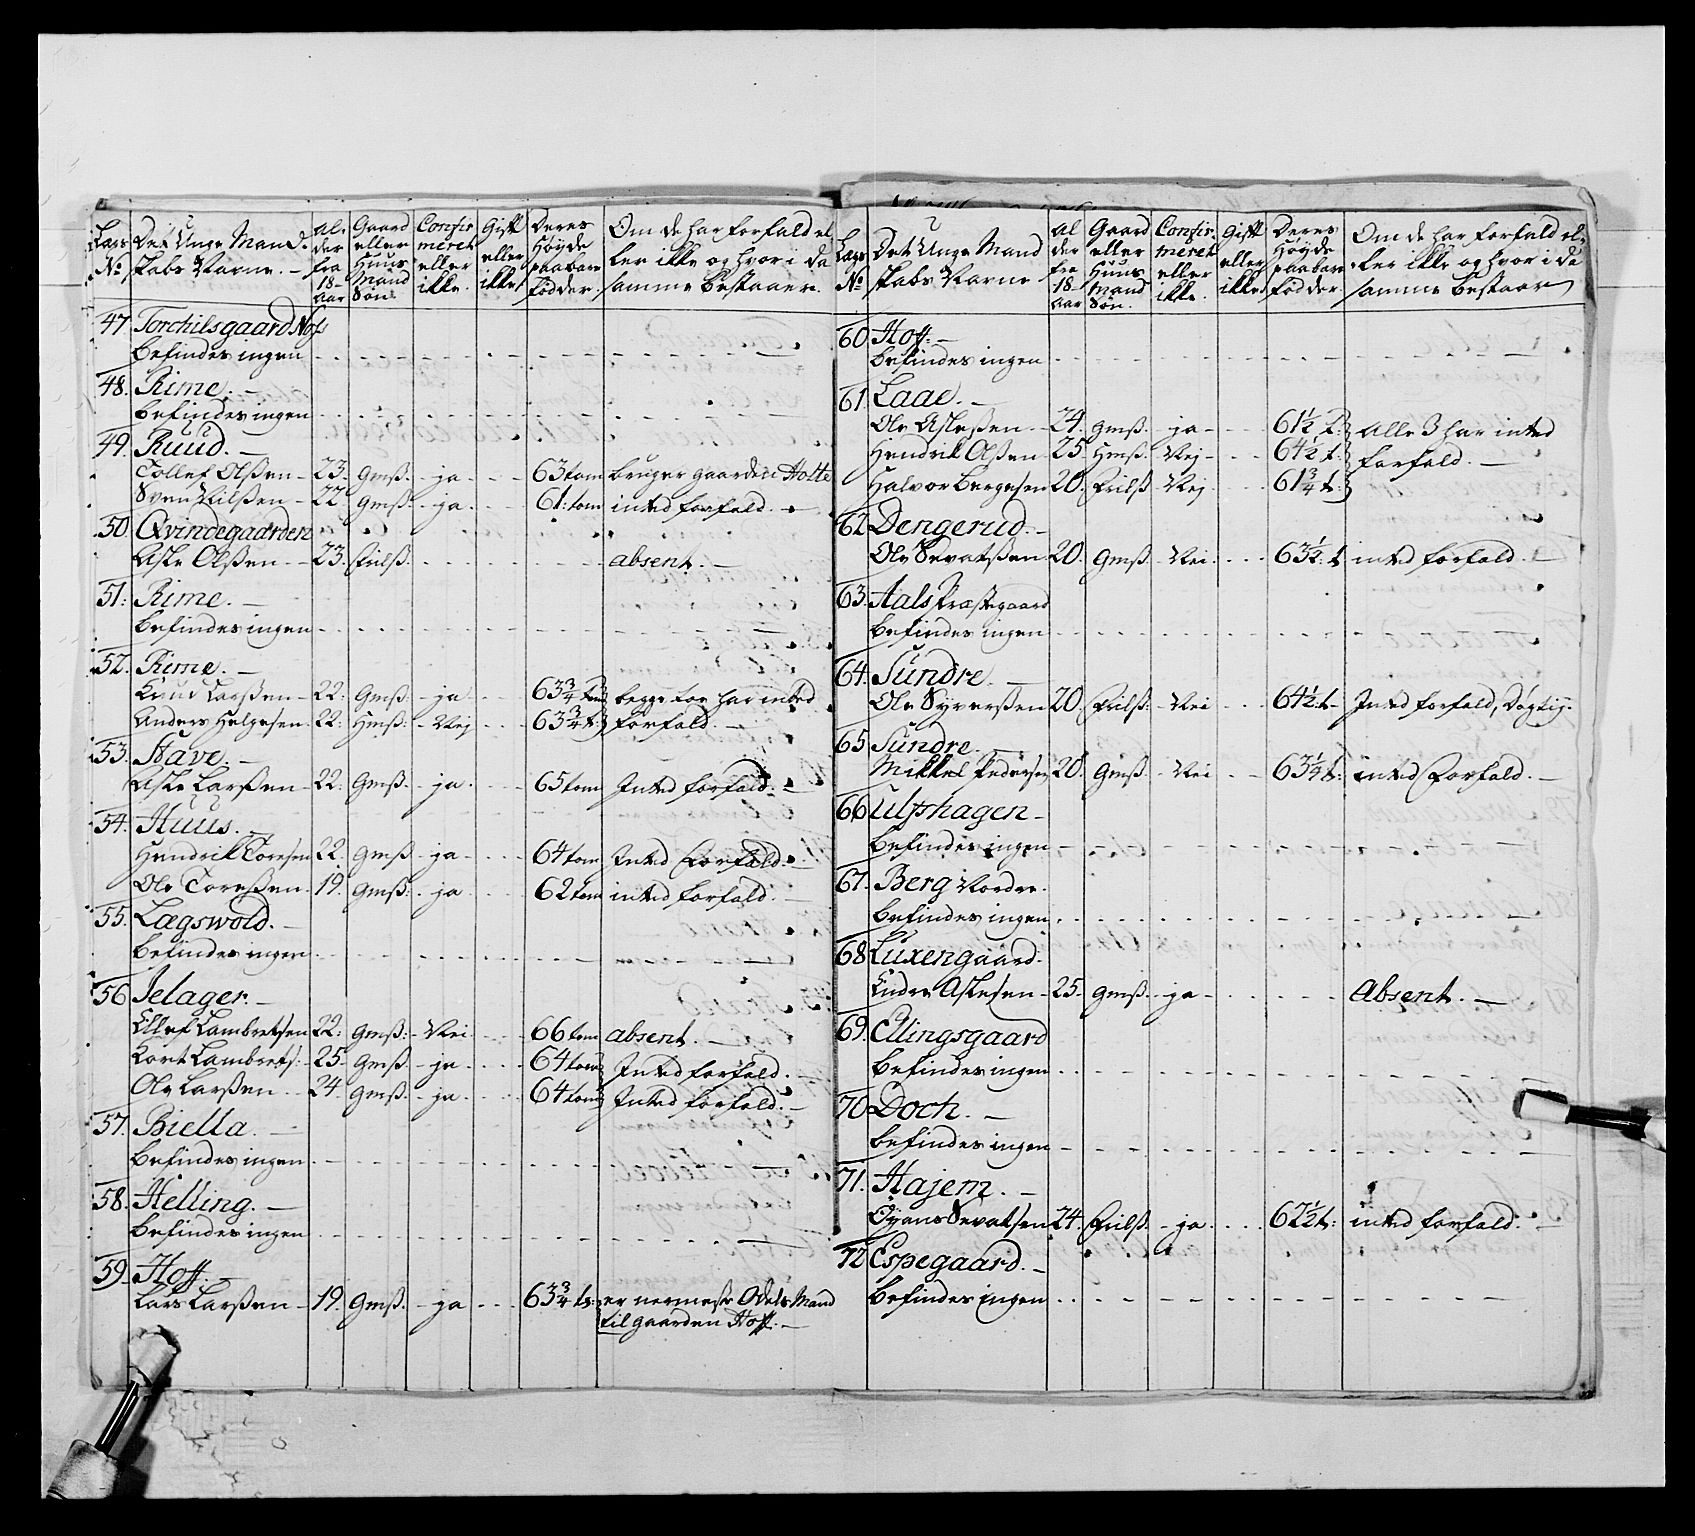 Lags No | Det Unge Mand- skabs Navne. – | al- der fra 18- aar | Gaard eller Huus Mand Søn. | Confir- meret eller ikke. | Gift eller ikke | Deres Høyde paa bare Fødder. | Om de har forfald el- ler ikke og hvor i de samme bestaaer.
47. Torchilsgaard Nofs
befindes ingen
48. Rime. –
befindes ingen
49. Ruud. –
Tollef Olßen – 23. Gmß. – ja – 63 tom bruger gaarden Holte
Sven Nilßen – 22 gmß. – ja. 61: tom inted forfald. –
50. Qvindegaarden
Asle Olßen – 23. Friilß. absent. –
51: Rime. –
befindes ingen
52. Rime. –
Knud Larßen – 22. Gmß. – ja 63 3/4 tom begge too har inted
Anders Helgesen 22: Hmß: – Nej 63 3/4 t: forfald. –
53. Stave. –
Asle Larßen – 22: Gmß. – ja. 65 tom Inted forfald. –
54. Huus. –
Hendrik Toresen 22. gmß – ja – 64 tom Inted Forfald. –
Ole Toreßen. 19. gmß: – ja 62 tom inted forfald. –
55. Lægswold. –
befindes ingen
56 Jelager. –
Ellef Lambretsen 22: Gmß: – Nei 66 tom absent. –
Kort Lambrets: – 25. Gmß. – ja. 64 tom Inted forfald. –
Ole Larßen 24. gmß. – ja 64 tom Inted forfald. –
57. Biella. –
befindes ingen
58. Helling. –
befindes ingen
59. Hoff. –
Lars Larßen – 19. Gmß. – ja 63 3/4 t: er nermeste Odels Mand
til gaarden Hoff. –
Lags No | Det Unge Mand skabs Navne | al der fra 18- aar | Gaard eller Huus Mand Søn. | Confir- meret eller ikke. | Gift eller ikke | Deres Høyde paa bare Fødder. | Om de har forfald el- ler ikke og hvor i de samme bestaaer
60 Hoff. –
befindes ingen
61. Laae. –
Ole Asleßen – 24. gmß. – ja – 61 1/2 t. alle 3 har inted
Hendrik Olßen 25. Hmß. Nej – 64 1/2 t. forfald. –
Halvor Bergesen 20. Friilß Nej 61 3/4 t.
62 Dengerud. –
Ole Sevatßen 20. gmß. Nei. 63 1/4: t inted forfald. –
63. Aals Præstegaard
befindes ingen
64. Sundre. –
Ole Syverßen 20. Friilß: – Nei 64 1/2: t – Inted forfald, Døgtig.
65. Sundre. –
Mikkel Pedersen 20. gmß. – Nei 63 1/4 t: inted Forfald. –
66 Ulfshagen –
befindes ingen
67. Berg Nordre.
befindes ingen
68 Luxengaard.
Endre Aslesen – 25. gmß. – ja – Absent. –
69. Elingsgaard
befindes ingen
70 Doch. –
befindes ingen
71. Hajem. –
Sevatsen 24. Friilß. – ja. 62 1/2 t: inted forfald. –
72 Espegaard. –
befindes ingen